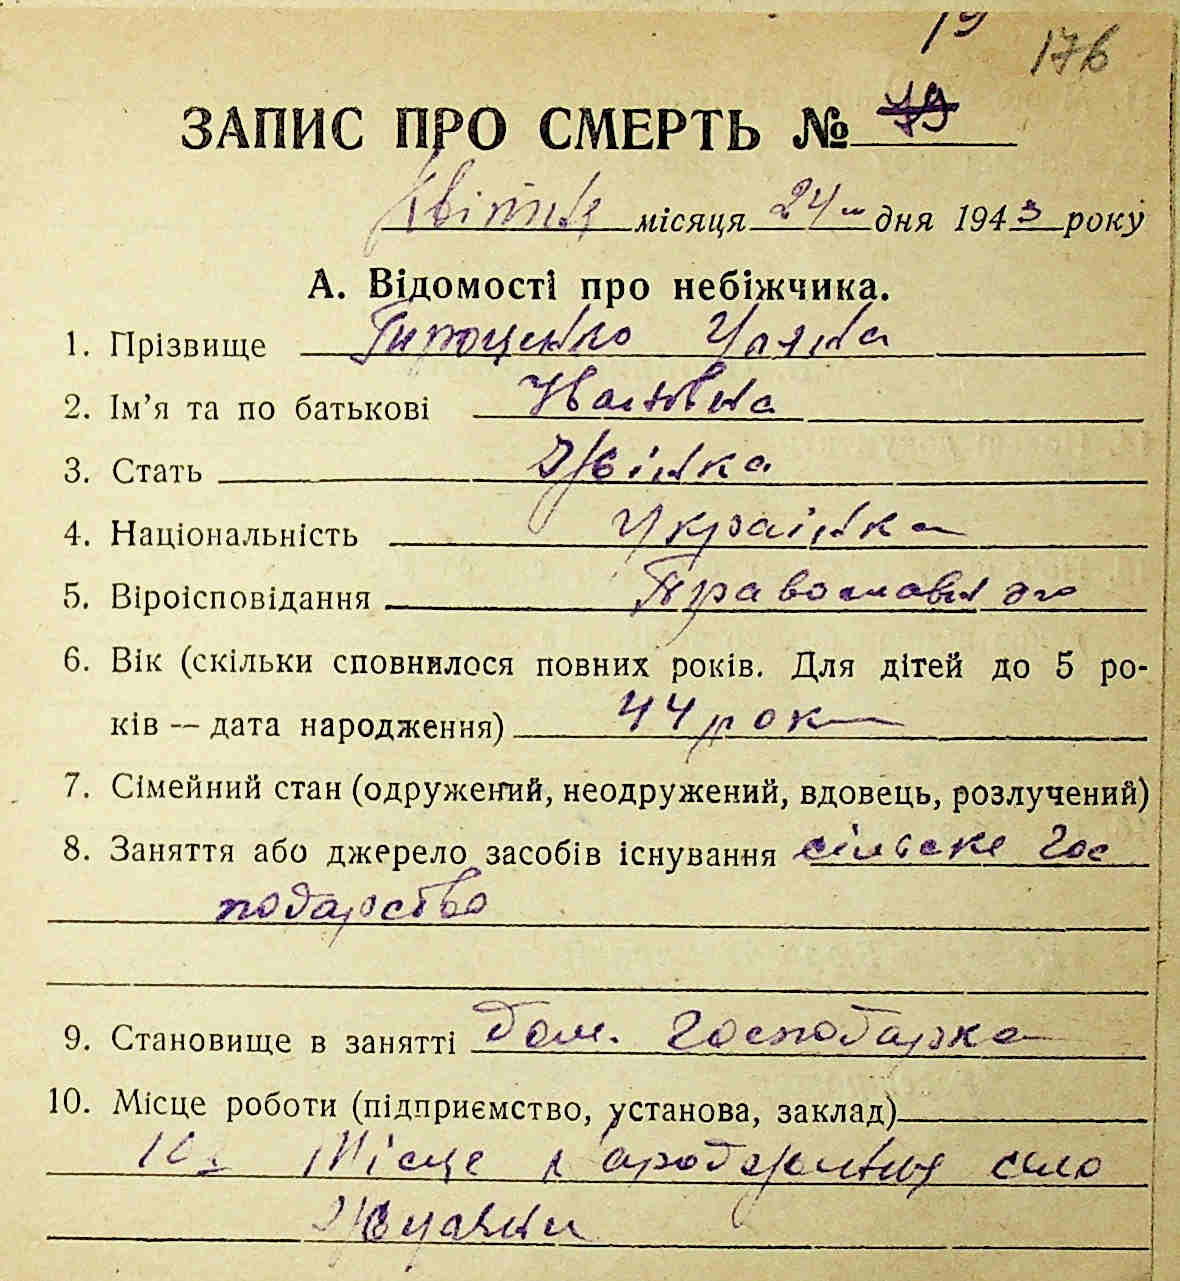 19
176
ЗАПИС ПРО СМЕРТЬ № 79
Квітня місяця 24 дня 1943 року
А. Відомості про небіжчика.
1. Прізвище Уляна
2. Ім’я та по батькові Іванівна
3. Стать Жінка
4. Національність Українка
5. Віроісповідання Православна
6. Вік (скільки сповнилося повних років. Для дітей до 5 ро-
ків — дата народження) 44 рок
7. Сімейний стан (одружений, неодружений, вдовець, розлучений)
8. Заняття або джерело засобів існування сільске гос
подарство
9. Становище в занятті дом. господарка
10. Місце роботи (підприємство, установа, заклад)
10 Місце народження село